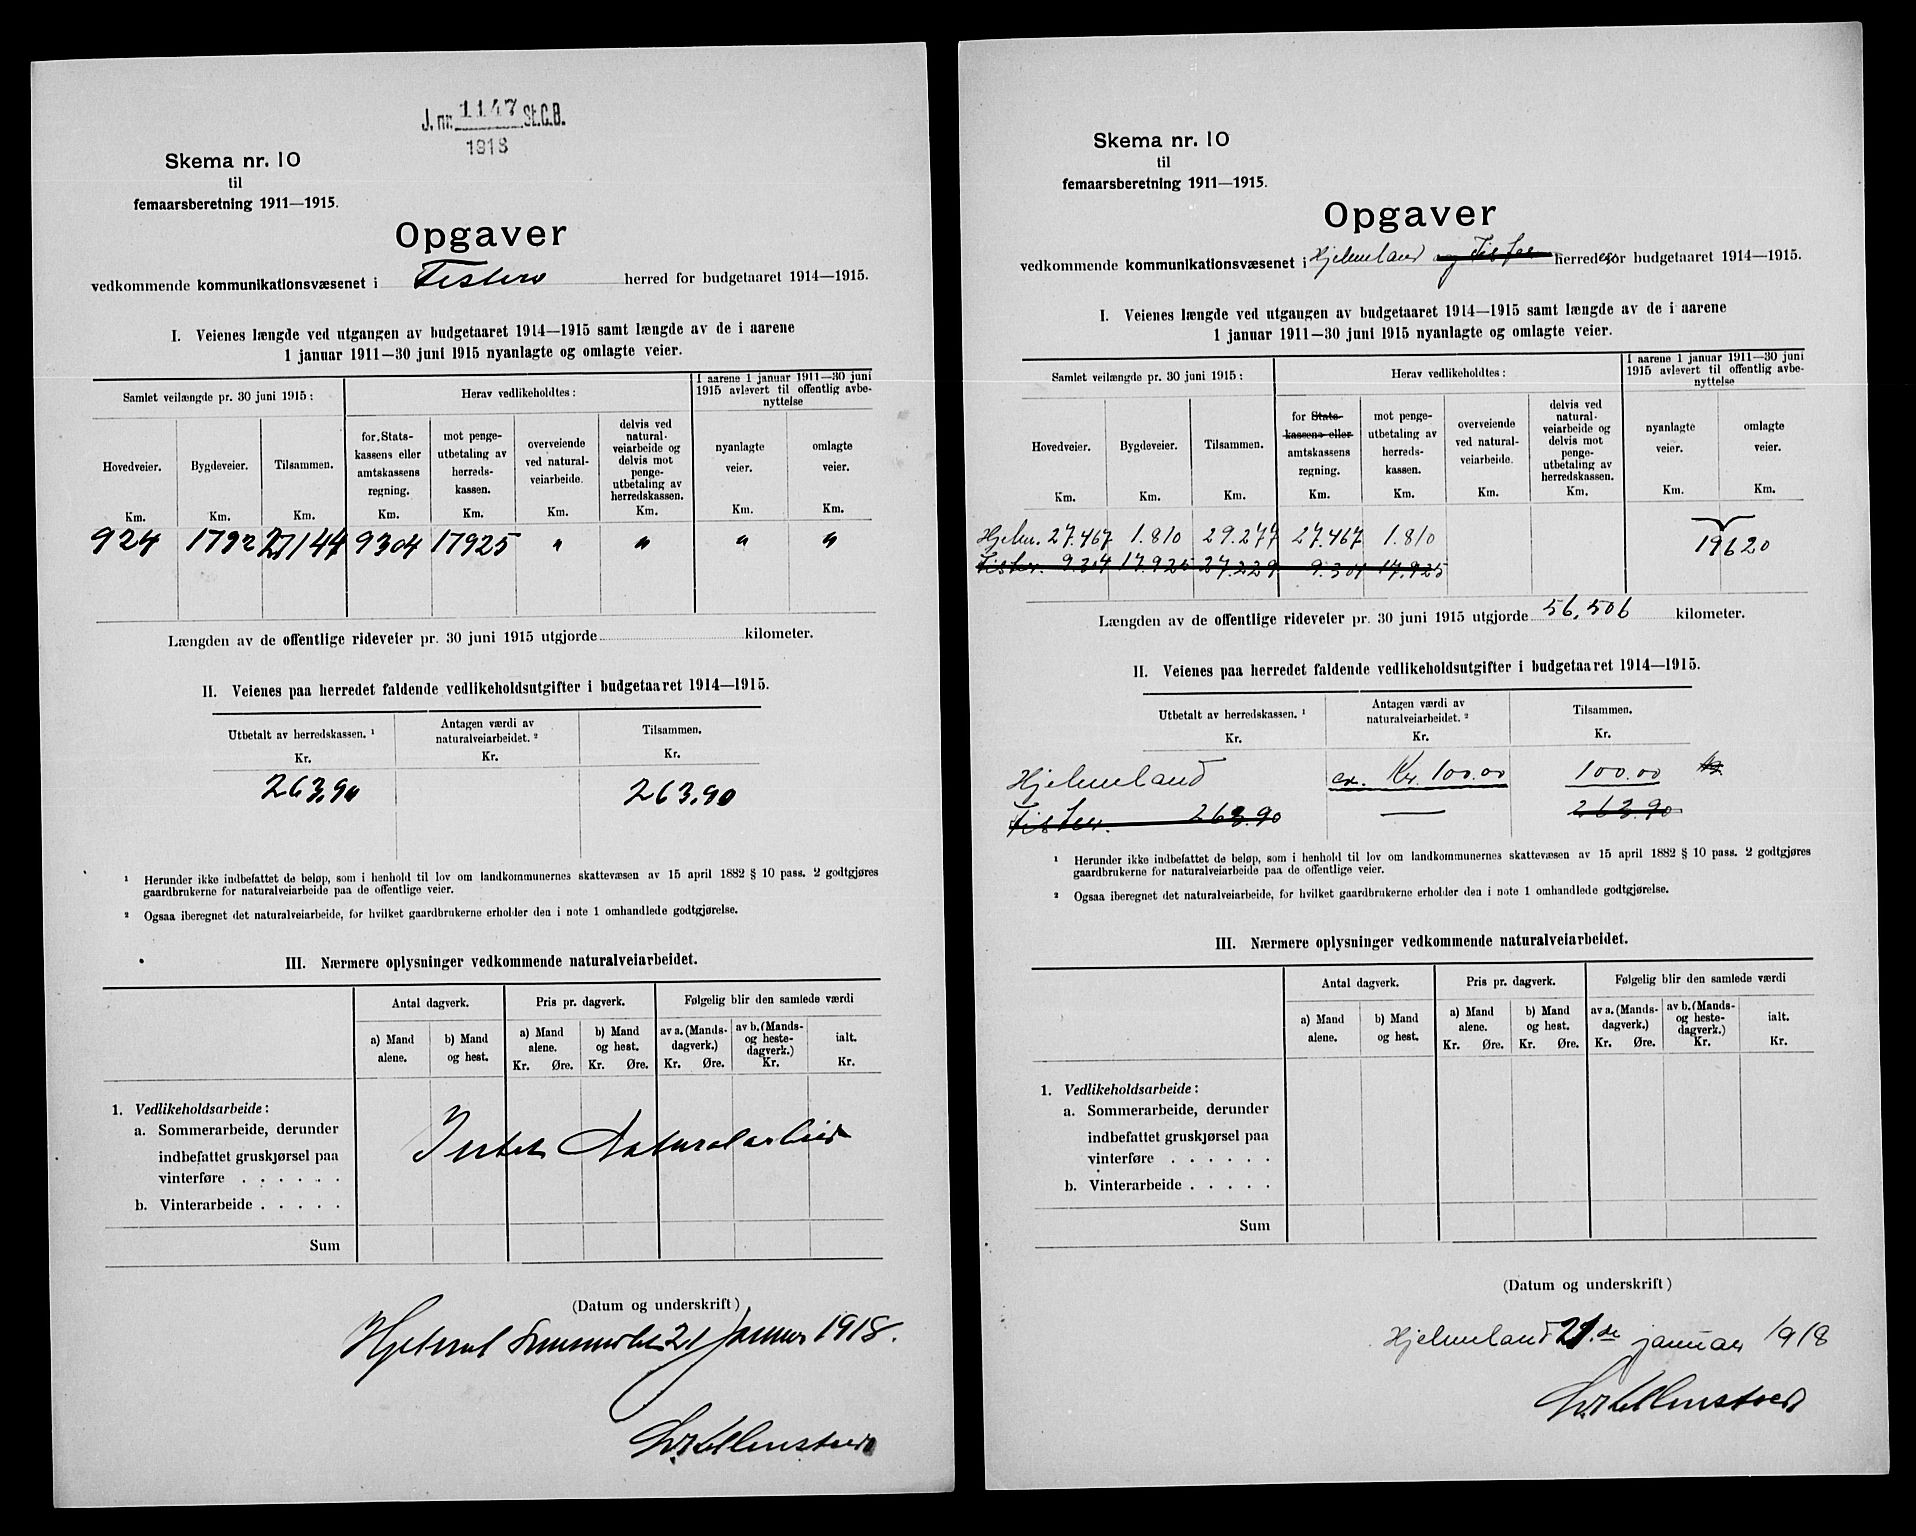 J. nr. 1147 St.C.B.
1918
Skema nr. 10
til
femaarsberetning 1911—1915.
Opgaver
vedkommende kommunikationsvæsenet i herred for budgetaaret 1914—1915.
I. Veienes længde ved utgangen av budgetaaret 1914—1915 samt længde av de i aarene
1 januar 1911—30 juni 1915 nyanlagte og omlagte veier.
Samlet veilængde pr. 30 juni 1915:
Herav vedlikeholdtes:
I aarene 1 januar 1911—30 juni
1915 avlevert til offentlig avbe-
nyttelse
Hovedveier.
Km.
Bygdeveier.
Km.
Tilsammen.
Km.
for Stats-
kassens eller
amtskassens
regning.
Km.
mot penge-
utbetaling av
herreds-
kassen.
Km.
overveiende
ved natural-
veiarbeide.
Km.
delvis ved
natural-
veiarbeide og
delvis mot
penge-
utbetaling av
herredskassen.
Km.
nyanlagte
veier.
Km.
omlagte
veier.
Km.
924 1792 27144 9304 17925 " " " "
Længden av de offentlige rideveier pr. 30 juni 1915 utgjorde kilometer.
II. Veienes paa herredet faldende vedlikeholdsutgifter i budgetaaret 1914—1915.
Utbetalt av herredskassen. ¹
Kr.
Antagen værdi av
naturalveiarbeidet. ²
Kr.
Tilsammen.
Kr.
263,90 263,90
¹ Herunder ikke indbefattet de beløp, som i henhold til lov om landkommunernes skattevæsen av 15 april 1882 § 10 pass. 2 godtgjøres
gaardbrukerne for naturalveiarbeide paa de offentlige veier.
² Ogsaa iberegnet det naturalveiarbeide, for hvilket gaardbrukerne erholder den i note 1 omhandlede godtgjørelse.
III. Nærmere oplysninger vedkommende naturalveiarbeidet.
Antal dagverk.
Pris pr. dagverk.
Følgelig blir den samlede værdi
a) Mand
alene.
b) Mand
og hest.
a) Mand
alene.
Kr. Øre.
b) Mand
og hest.
Kr. Øre.
av a. (Mands-
dagverk.)
Kr. Øre.
av b. (Mands-
og heste-
dagverk.)
Kr.
ialt.
Kr.
1. Vedlikeholdsarbeide:
a. Sommerarbeide, derunder
indbefattet gruskjørsel paa
vinterføre . . . . . .
b. Vinterarbeide . . . . .
Intet Naturalarbeid
Sum
(Datum og underskrift)
21 januar 1918.
Skema nr. 10
til
femaarsberetning 1911—1915.
Opgaver
vedkommende kommunikationsvæsenet i Hjelmeland og Fister herreder for budgetaaret 1914—1915.
I. Veienes længde ved utgangen av budgetaaret 1914—1915 samt længde av de i aarene
1 januar 1911—30 juni 1915 nyanlagte og omlagte veier.
Samlet veilængde pr. 30 juni 1915:
Herav vedlikeholdtes:
I aarene 1 januar 1911—30 juni
1915 avlevert til offentlig avbe-
nyttelse
Hovedveier.
Km.
Bygdeveier.
Km.
Tilsammen.
Km.
for Stats-
kassens eller
amtskassens
regning.
Km.
mot penge-
utbetaling av
herreds-
kassen.
Km.
overveiende
ved natural-
veiarbeide.
Km.
delvis ved
natural-
veiarbeide og
delvis mot
penge-
utbetaling av
herredskassen.
Km.
nyanlagte
veier.
Km.
omlagte
veier.
Km.
Hjelm. 27.467 1.810 29.277 27.467 1.810 19620
Fister. 9.304 17.925 27.229 9.304 17.925
Længden av de offentlige rideveier pr. 30 juni 1915 utgjorde 56,506 kilometer.
II. Veienes paa herredet faldende vedlikeholdsutgifter i budgetaaret 1914—1915.
Utbetalt av herredskassen. ¹
Kr.
Antagen værdi av
naturalveiarbeidet. ²
Kr.
Tilsammen.
Kr.
Hjelmeland ca. Kr. 100.00 100.00
Fister. 263.90 — 263.90
¹ Herunder ikke indbefattet de beløp, som i henhold til lov om landkommunernes skattevæsen av 15 april 1882 § 10 pass. 2 godtgjøres
gaardbrukerne for naturalveiarbeide paa de offentlige veier.
² Ogsaa iberegnet det naturalveiarbeide, for hvilket gaardbrukerne erholder den i note 1 omhandlede godtgjørelse.
III. Nærmere oplysninger vedkommende naturalveiarbeidet.
Antal dagverk.
Pris pr. dagverk.
Følgelig blir den samlede værdi
a) Mand
alene.
b) Mand
og hest.
a) Mand
alene.
Kr. Øre.
b) Mand
og hest.
Kr. Øre.
av a. (Mands-
dagverk.)
Kr. Øre.
av b. (Mands-
og heste-
dagverk.)
Kr.
ialt.
Kr.
1. Vedlikeholdsarbeide:
a. Sommerarbeide, derunder
indbefattet gruskjørsel paa
vinterføre . . . . . .
b. Vinterarbeide . . . . .
Sum
(Datum og underskrift)
Hjelmeland 21.de januar 1918